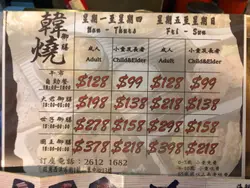 韓燒
星期一至星期四 星期五至星期日
Mon - Thurs Fri - Sun
成人 小童及長者 成人 小童及長者
Adult Child&Elder Adult Child&Elder
午市
自助餐 $128 $99 $128 $99
$198 $138 $218 $138
世子御膳 $278 $158 $298 $158
國王御膳 $378 $218 $398 $218
訂座電話：2612 1682